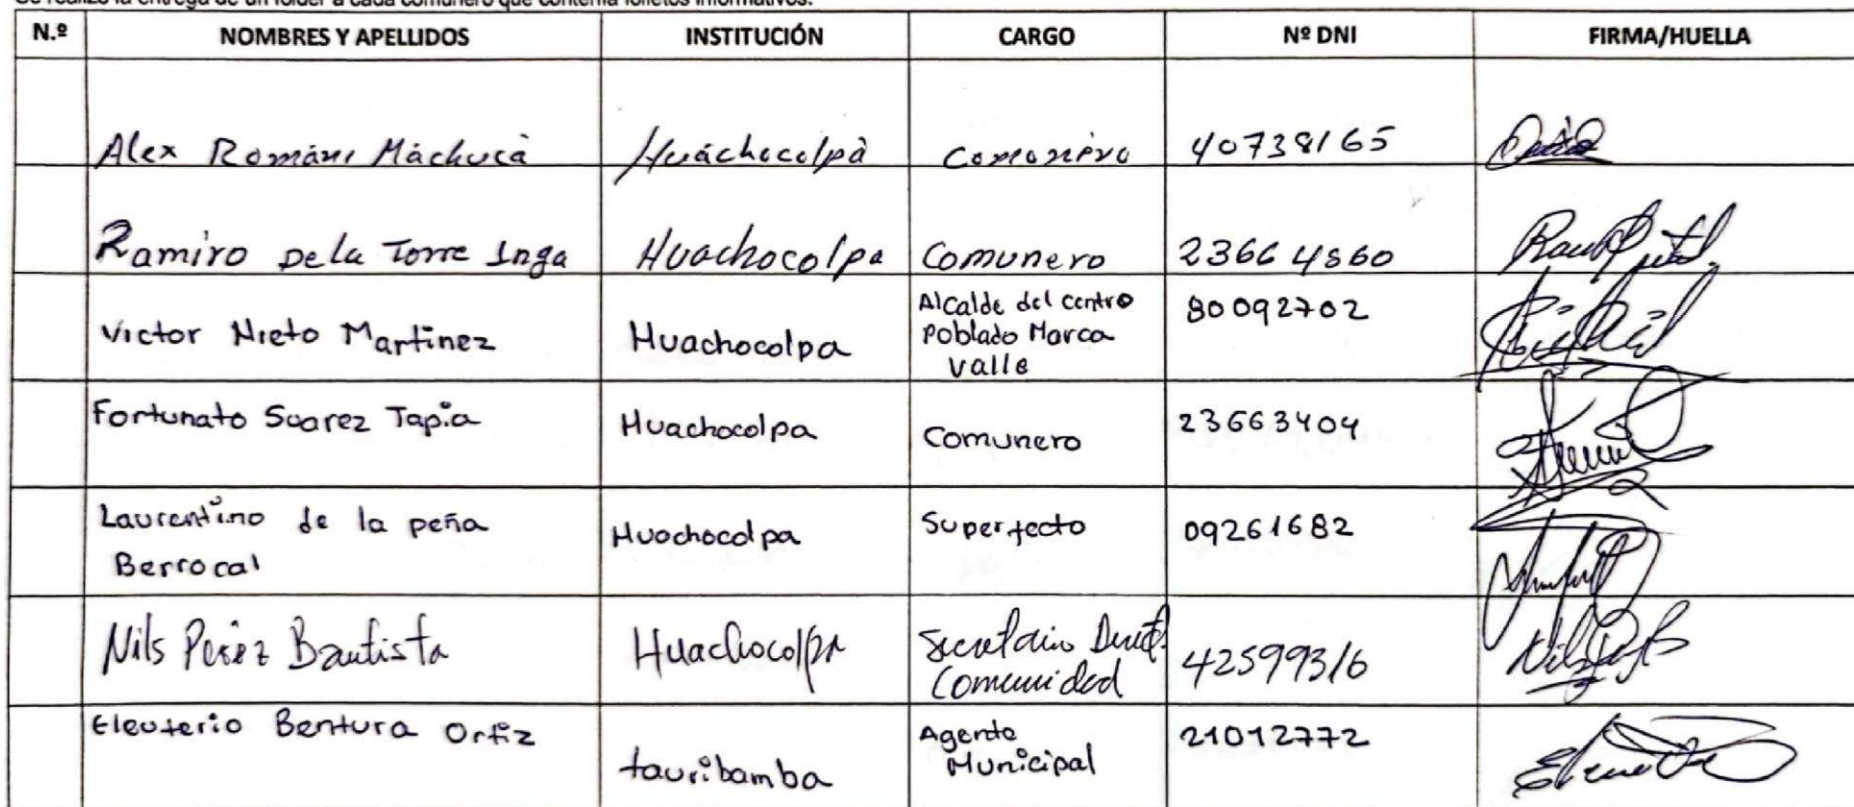 Se realizó la entrega de un folder a cada comunero que contenía folletos informativos.
N.º NOMBRES Y APELLIDOS INSTITUCIÓN CARGO Nº DNI FIRMA/HUELLA
Alex Románi Máchucà Huáchocolpà Comonero 40738165
Ramiro De la Torre Inga Huachocolpa Comunero 23664560
Victor Nieto Martinez Huachocolpa Alcalde del centro 80092702
Poblado Marca
valle
Fortunato Suarez Tapia Huachocolpa Comunero 23663404
Laurentino de la peña Huachocolpa Superfecto 09261682
Berrocal
Nils Perez Bautista Huachocolpa Secretario 42599316
Comunidad
Eleuterio Bentura Ortiz tauribamba Agente 21012772
Municipal